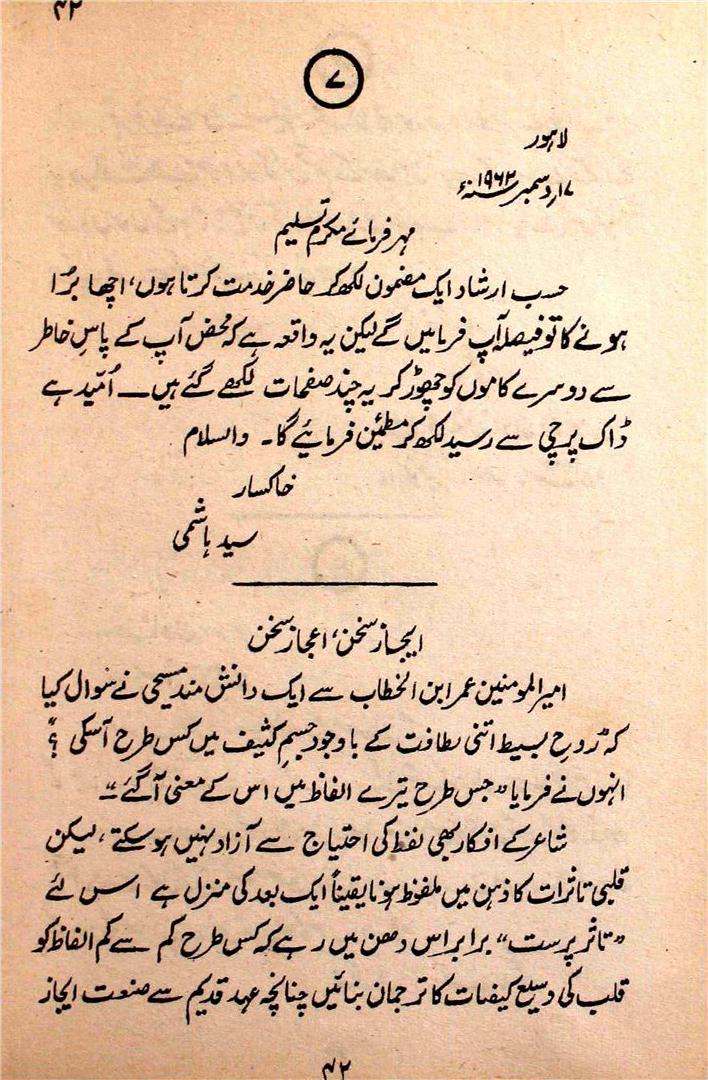 ۴۲
۷
لاہور
۱۷ر دسمبر ۱۹۶۲ء
مہر فرمائے مکرم تسلیم
حسب ارشاد ایک مضمون لکھ کر حاضر خدمت کرتا ہوں، اچھا بُرا
ہونے کا تو فیصلہ آپ فرمایں گے لیکن یہ واقعہ ہے کہ محض آپ کے پاسِ خاطر
سے دوسرے کاموں کو چھوڑ کر یہ چند صفحات لکھے گئے ہیں ــ اُمّید ہے
ڈاک پرچی سے رسید لکھ کر مطمئین فرمائیے گا۔ والسلام
خاکسار
سید ہاشمی
ایجاز سخن، اعجاز سخن
امیر المومنین عمر ابن الخطاب سے ایک دانش مند مسیحی نے سوال کیا
کہ "روحِ بسیط اتنی لطافت کے باوجود جسمِ کثیف میں کس طرح آسکی ؟"
انہوں نے فرمایا "جس طرح تیرے الفاظ میں اس کے معنی آگئے"۔
شاعر کے افکار بھی لفظ کی احتیاج سے آزاد نہیں ہوسکتے، لیکن
قلبی تاثرات کا ذہن میں ملفوظ ہونا یقیناً ایک بعد کی منزل ہے اس لئے
"تاثر پرست" برابر اس دھن میں رہے کہ کس طرح کم سے کم الفاظ کو
قلب کی وسیع کیفیات کا ترجمان بنائیں چنانچہ عہد قدیم سے صنعت ایجاز
۴۲